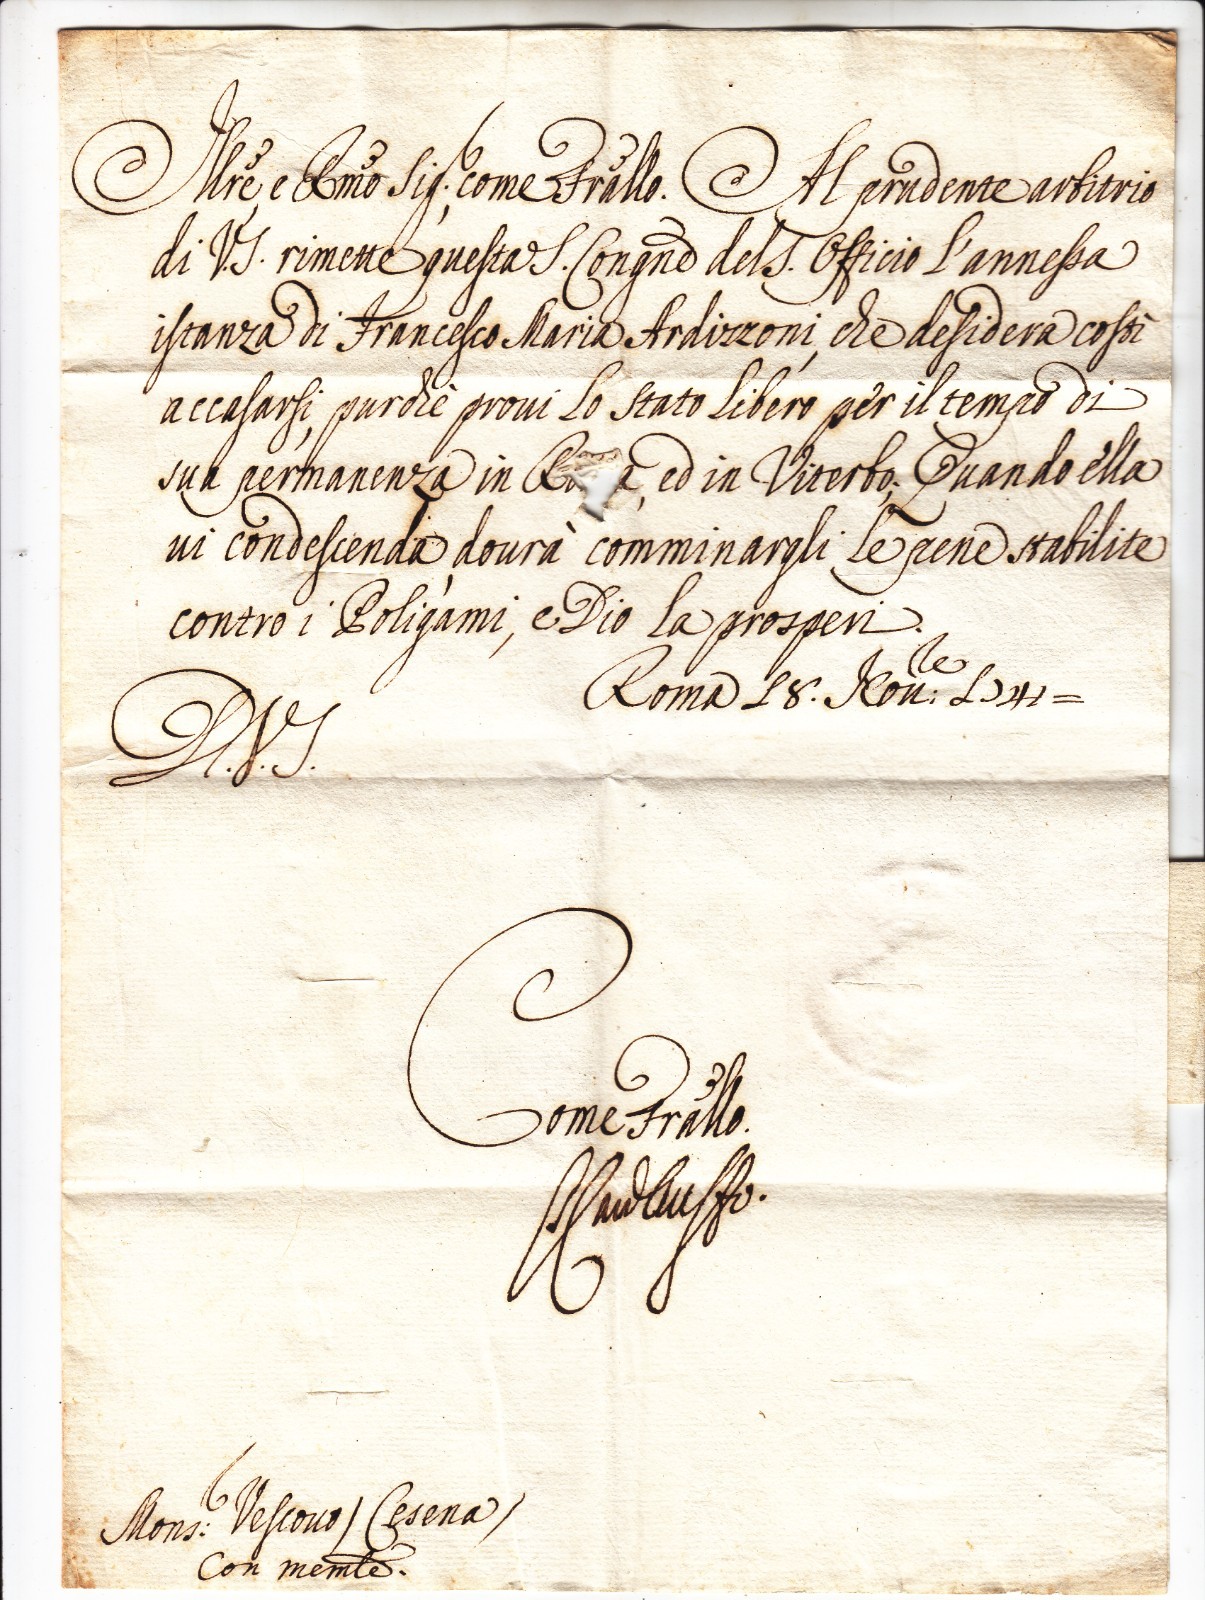 Illre, e Rmo Sig.r come Frallo. Al prudente arbitrio
di V.S. rimette questa S. Congne del S. Officio l'annessa
istanza di Francesco Maria Ardizzoni, che desidera costì
accasarsi, purchè provi lo stato libero per il tempo di
sua permanenza in R a, ed in Viterbo; Quando ella
vi condescenda, dourà comminargli le pene stabilite
contro i Poligami, e Dio la prosperi.
Roma 18. Nou:le
D.V.S.
Come Frallo.
Mons:r Vescouo / Cesena /
Con memle.